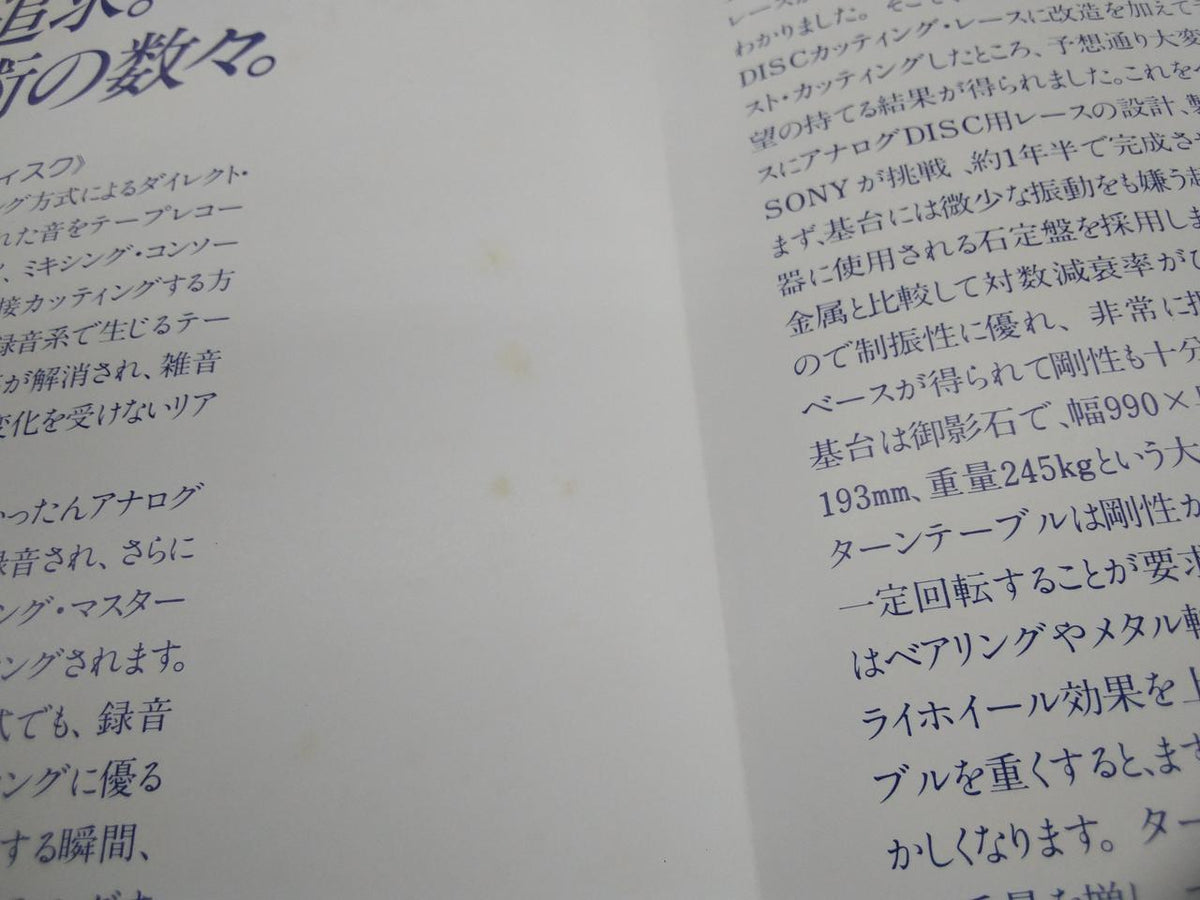 追求。
術の数々。
ィスク》
グ方式によるダイレクト・
れた音をテープレコー
、ミキシング・コンソー
接カッティングする方
録音系で生じるテー
が解消され、雑音
変化を受けないリア
かったんアナログ
録音され、さらに
ング・マスター
ィングされます。
式でも、録音
ングに優る
する瞬間、
わかりました。そこで
DISCカッティング・レースに改造を加えて
スト・カッティングしたところ、予想通り大変
望の持てる結果が得られました。これをベ
スにアナログDISC用レースの設計、製
SONYが挑戦、約1年半で完成さ
まず、基台には微少な振動をも嫌う超
器に使用される石定盤を採用しま
金属と比較して対数減衰率がひ
ので制振性に優れ、非常に
ベースが得られて剛性も十分
基台は御影石で、幅990×
193mm、重量245kgという大
ターンテーブルは剛性が
一定回転することが要求
はベアリングやメタル軸
ライホイール効果を上
ブルを重くすると、ます
かしくなります。ター